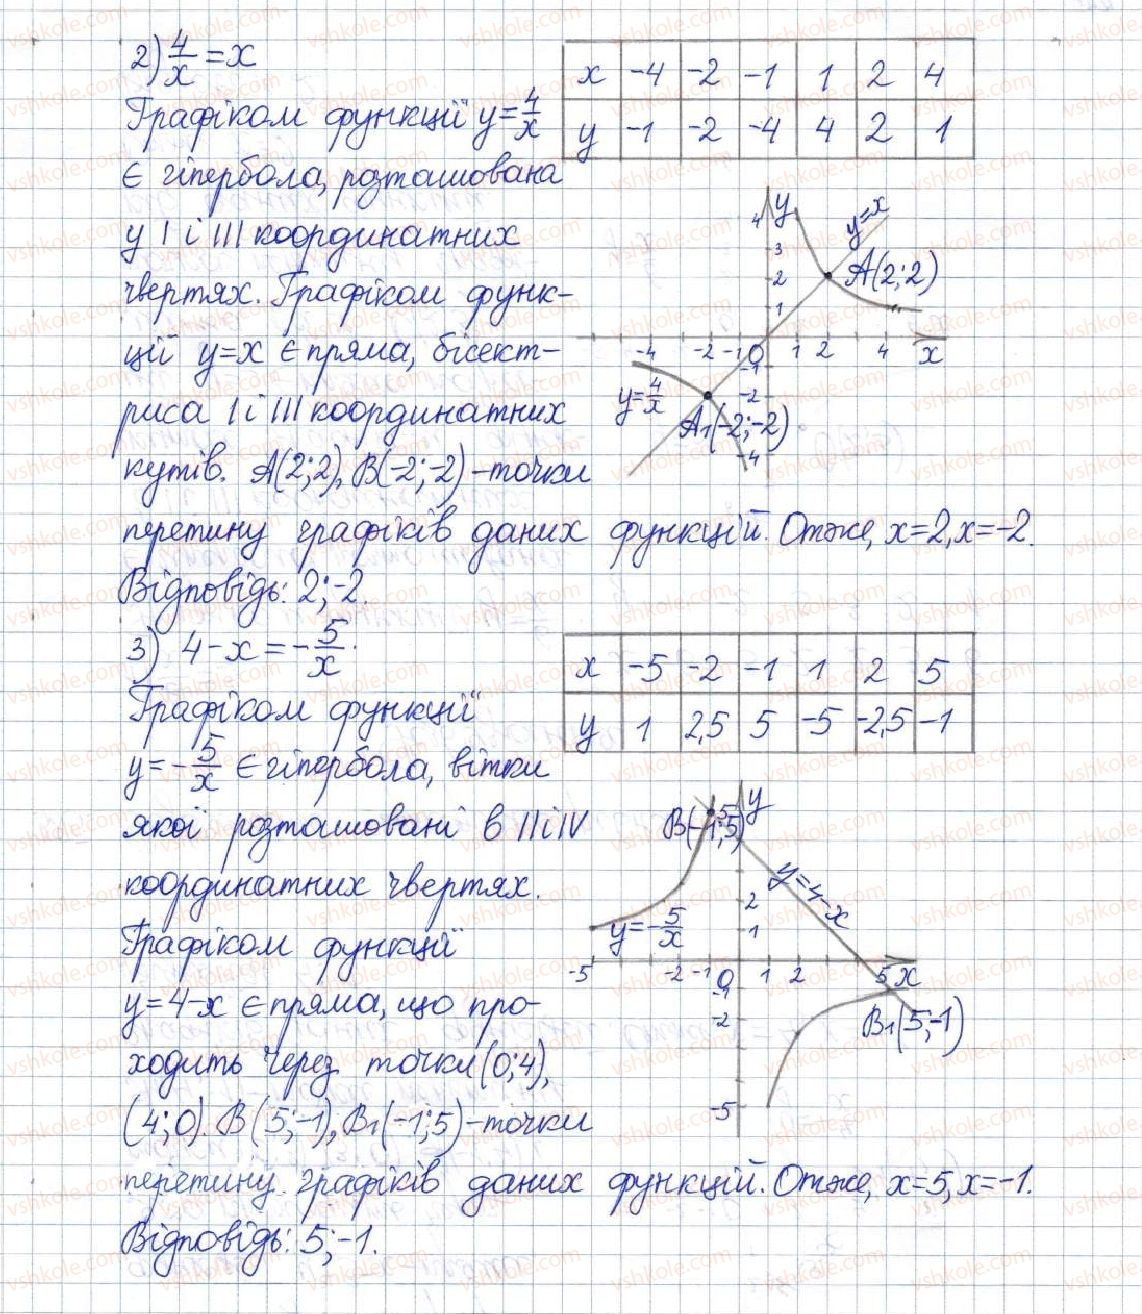 2) 4/x = x
x -4 -2 -1 1 2 4
y -1 -2 -4 4 2 1
Графіком функції y = 4/x
є гіпербола, розташована
у I і III координатних
чвертях. Графіком функ-
ції y=x є пряма, бісект-
риса I і III координатних
кутів. A(2;2), B(-2;-2) – точки
перетину графіків даних функцій. Отже, x=2, x=-2.
Відповідь: 2; -2.
y
y=x
4
3
2
1
A(2;2)
-4 -2 -1 0 1 2 4 x
-1
-2
-4
y = 4/x
A1(-2;-2)
3) 4 - x = -5/x.
x -5 -2 -1 1 2 5
y 1 2,5 5 -5 -2,5 -1
Графіком функції
y = -5/x є гіпербола, вітки
якої розташовані в II і IV
координатних чвертях.
Графіком функції
y=4-x є пряма, що про-
ходить через точки (0;4),
(4;0). B(5;-1), B1(-1;5) – точки
перетину графіків даних функцій. Отже, x=5, x=-1.
Відповідь: 5; -1.
y
5
B(-1;5)
y=4-x
2
1
y = -5/x
-5 -2 -1 0 1 2 5 x
-1
-2
-5
B1(5;-1)
vshkole.com